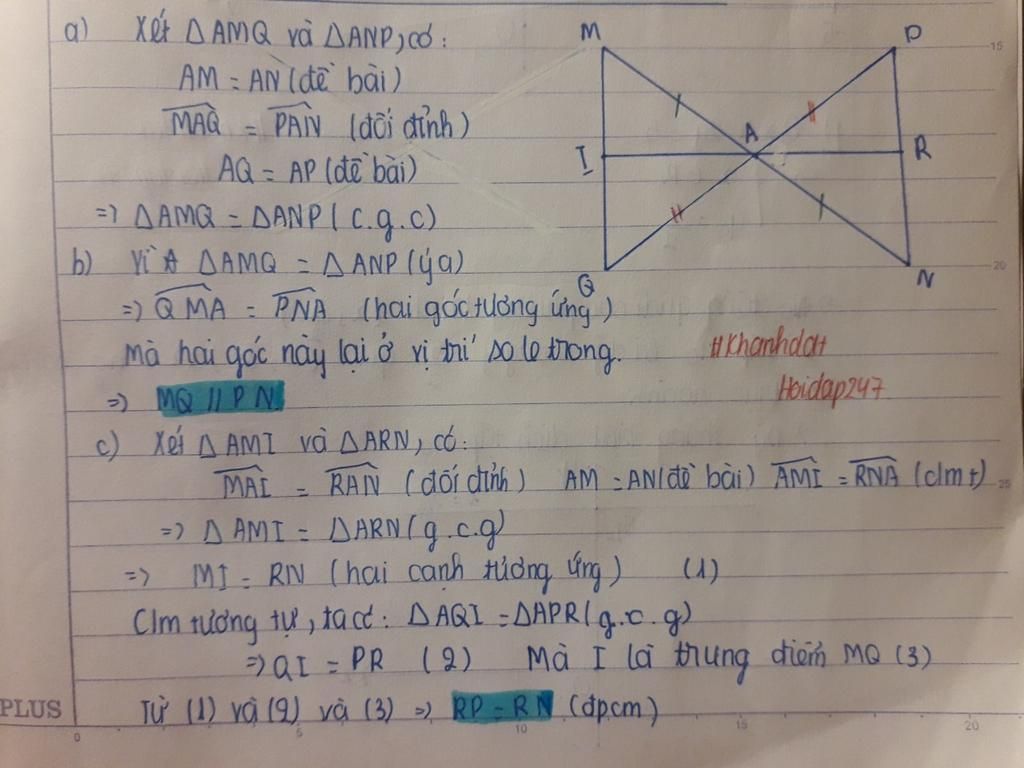 a) Xét ΔAMQ và ΔANP, có:
AM = AN (đề bài)
MAQ = PAN (đối đỉnh)
AQ = AP (đề bài)
=> ΔAMQ = ΔANP (c.g.c)
b) Vì ΔAMQ = ΔANP (ý a)
=> QMA = PNA (hai góc tương ứng)
Mà hai góc này lại ở vị trí so le trong.
=> MQ // PN
c) Xét ΔAMI và ΔARN, có:
MAI = RAN (đối đỉnh) AM = AN (đề bài) AMI = RNA (cmt)
=> ΔAMI = ΔARN (g.c.g)
=> MI = RN (hai cạnh tương ứng) (1)
Cm tương tự, ta có: ΔAQI = ΔAPR (g.c.g)
=> QI = PR (2) Mà I là trung điểm MQ (3)
Từ (1) và (2) và (3) => RP = RN (đpcm)
M P
A
I R
Q N
#Khanhdat
Hoidap247
15
20
25
PLUS
0 5 10 15 20